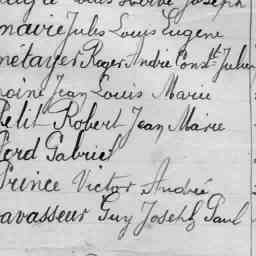 Louis Hervé Joseph
navie Jules Louis Eugène
nétayer Roger André Const. Julien
oine Jean Louis Marie
Petit Robert Jean Marie
Gabriel
Prince Victor André
avasseur Guy Joseph Paul